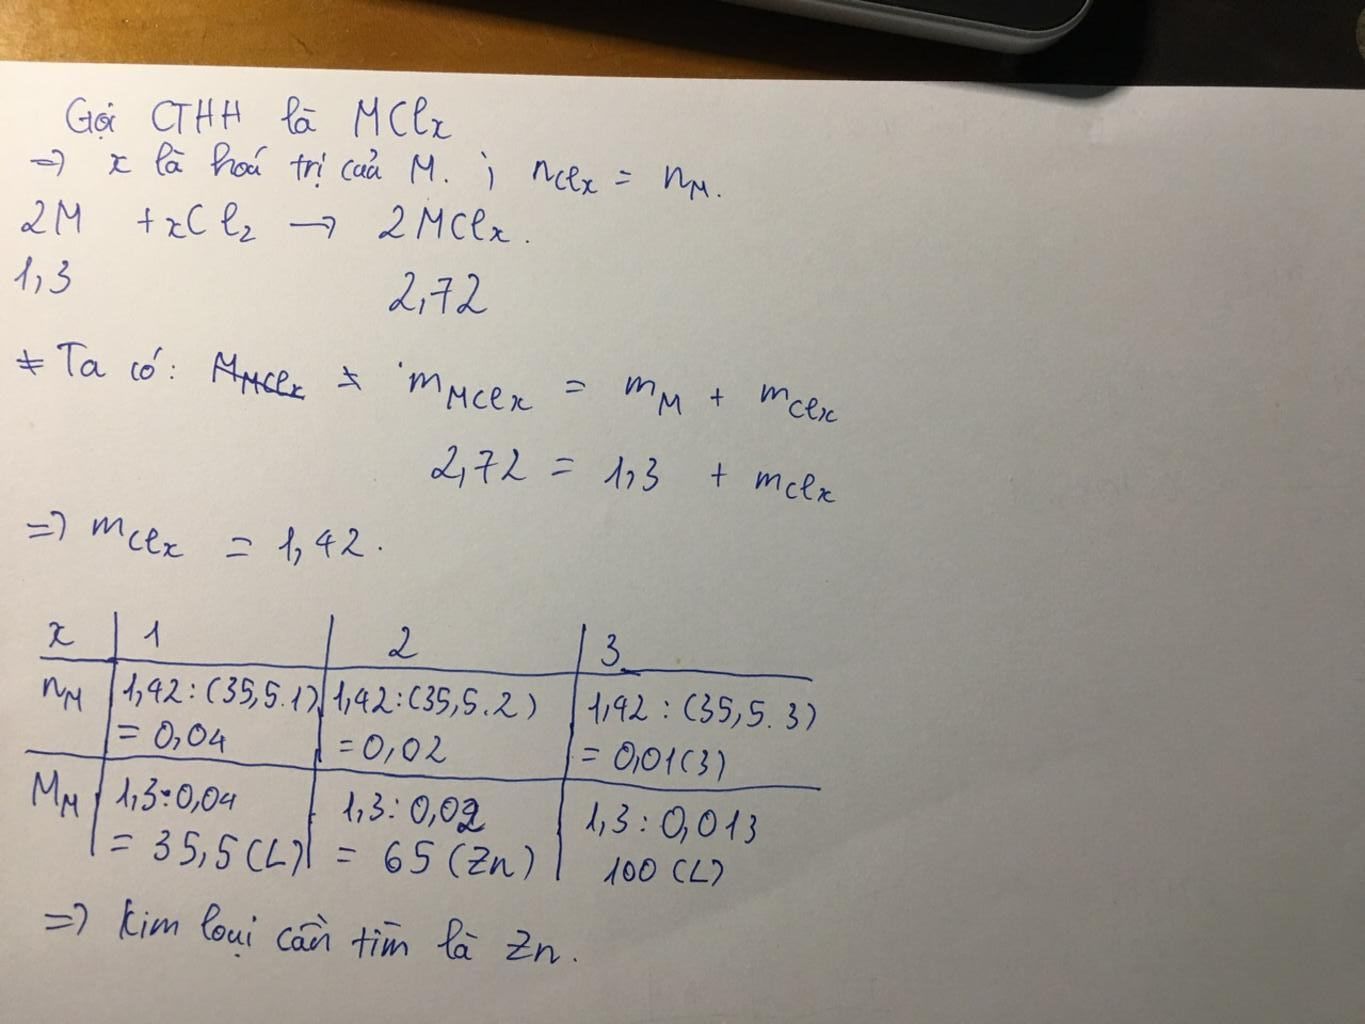 Gọi CTHH là MClx
=> x là hoá trị của M. ; nclx = nM.
2M + xCl2 → 2MClx.
1,3 2,72
* Ta có: MMClx * mMClx = mM + mclx
2,72 = 1,3 + mclx
=> mclx = 1,42.
x 1 2 3
nM 1,42:(35,5.1) 1,42:(35,5.2) 1,42:(35,5.3)
= 0,04 = 0,02 = 0,01(3)
MM 1,3:0,04 1,3:0,02 1,3:0,013
= 35,5(L) = 65(Zn) 100(L)
=> Kim loại cần tìm là Zn.